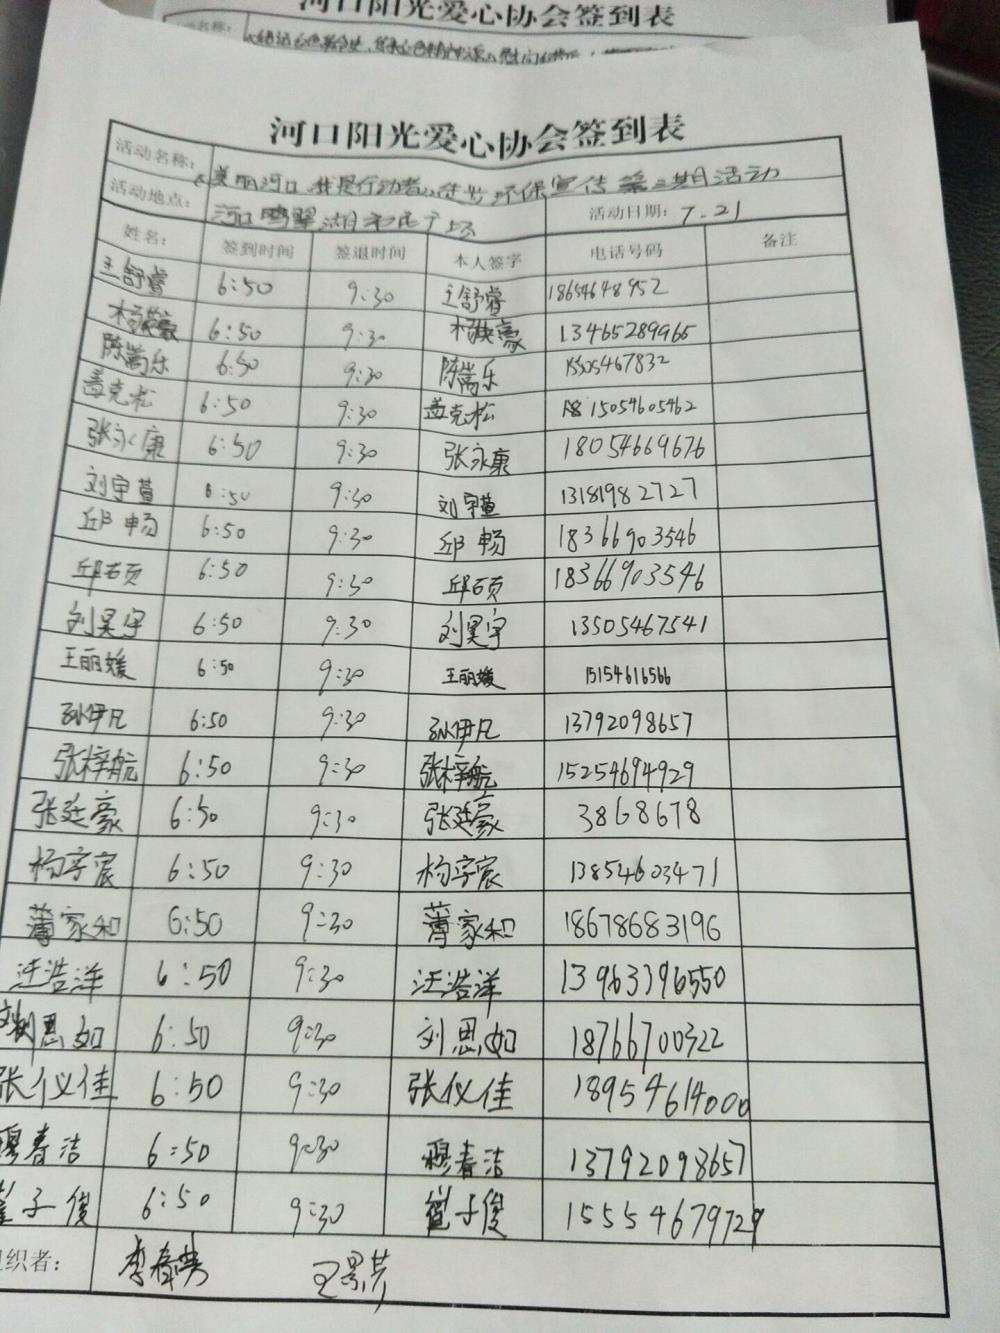 河口阳光爱心协会签到表
河口阳光爱心协会签到表
活动名称: 美丽河口 我是行动者 环保宣传第二期活动
活动地点: 河口鸣翠湖 广场 活动日期: 7.21
姓名: 签到时间 签退时间 本人签字 电话号码 备注
王舒睿 6:50 9:30 王舒睿 18654648952
6:50 9:30 13465289965
陈嵩乐 6:50 9:30 陈嵩乐 15505467832
盖克松 6:50 9:30 盖克松 15054605462
张永康 6:50 9:30 张永康 18054669676
刘宇萱 6:50 9:30 刘宇萱 13181982727
邱畅 6:50 9:30 邱畅 18366903546
邱硕 6:50 9:30 邱硕 18366903546
刘昊宇 6:50 9:30 刘昊宇 13505467541
王丽媛 6:50 9:30 王丽媛 15154616566
孙伊凡 6:50 9:30 孙伊凡 13792098657
张梓航 6:50 9:30 张梓航 15254694929
张廷豪 6:50 9:30 张廷豪 3868678
杨字宸 6:50 9:30 杨字宸 13854603471
薄家和 6:50 9:30 薄家和 18678683196
汪浩洋 6:50 9:30 汪浩洋 13963396550
刘思如 6:50 9:30 刘思如 18766700322
张仪佳 6:50 9:30 张仪佳 18954614000
穆春洁 6:50 9:30 穆春洁 13792098657
崔子俊 6:50 9:30 崔子俊 15554679729
织者: 李春 王景芬